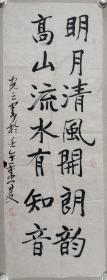 明月清風開朗韵
高山流水有知音